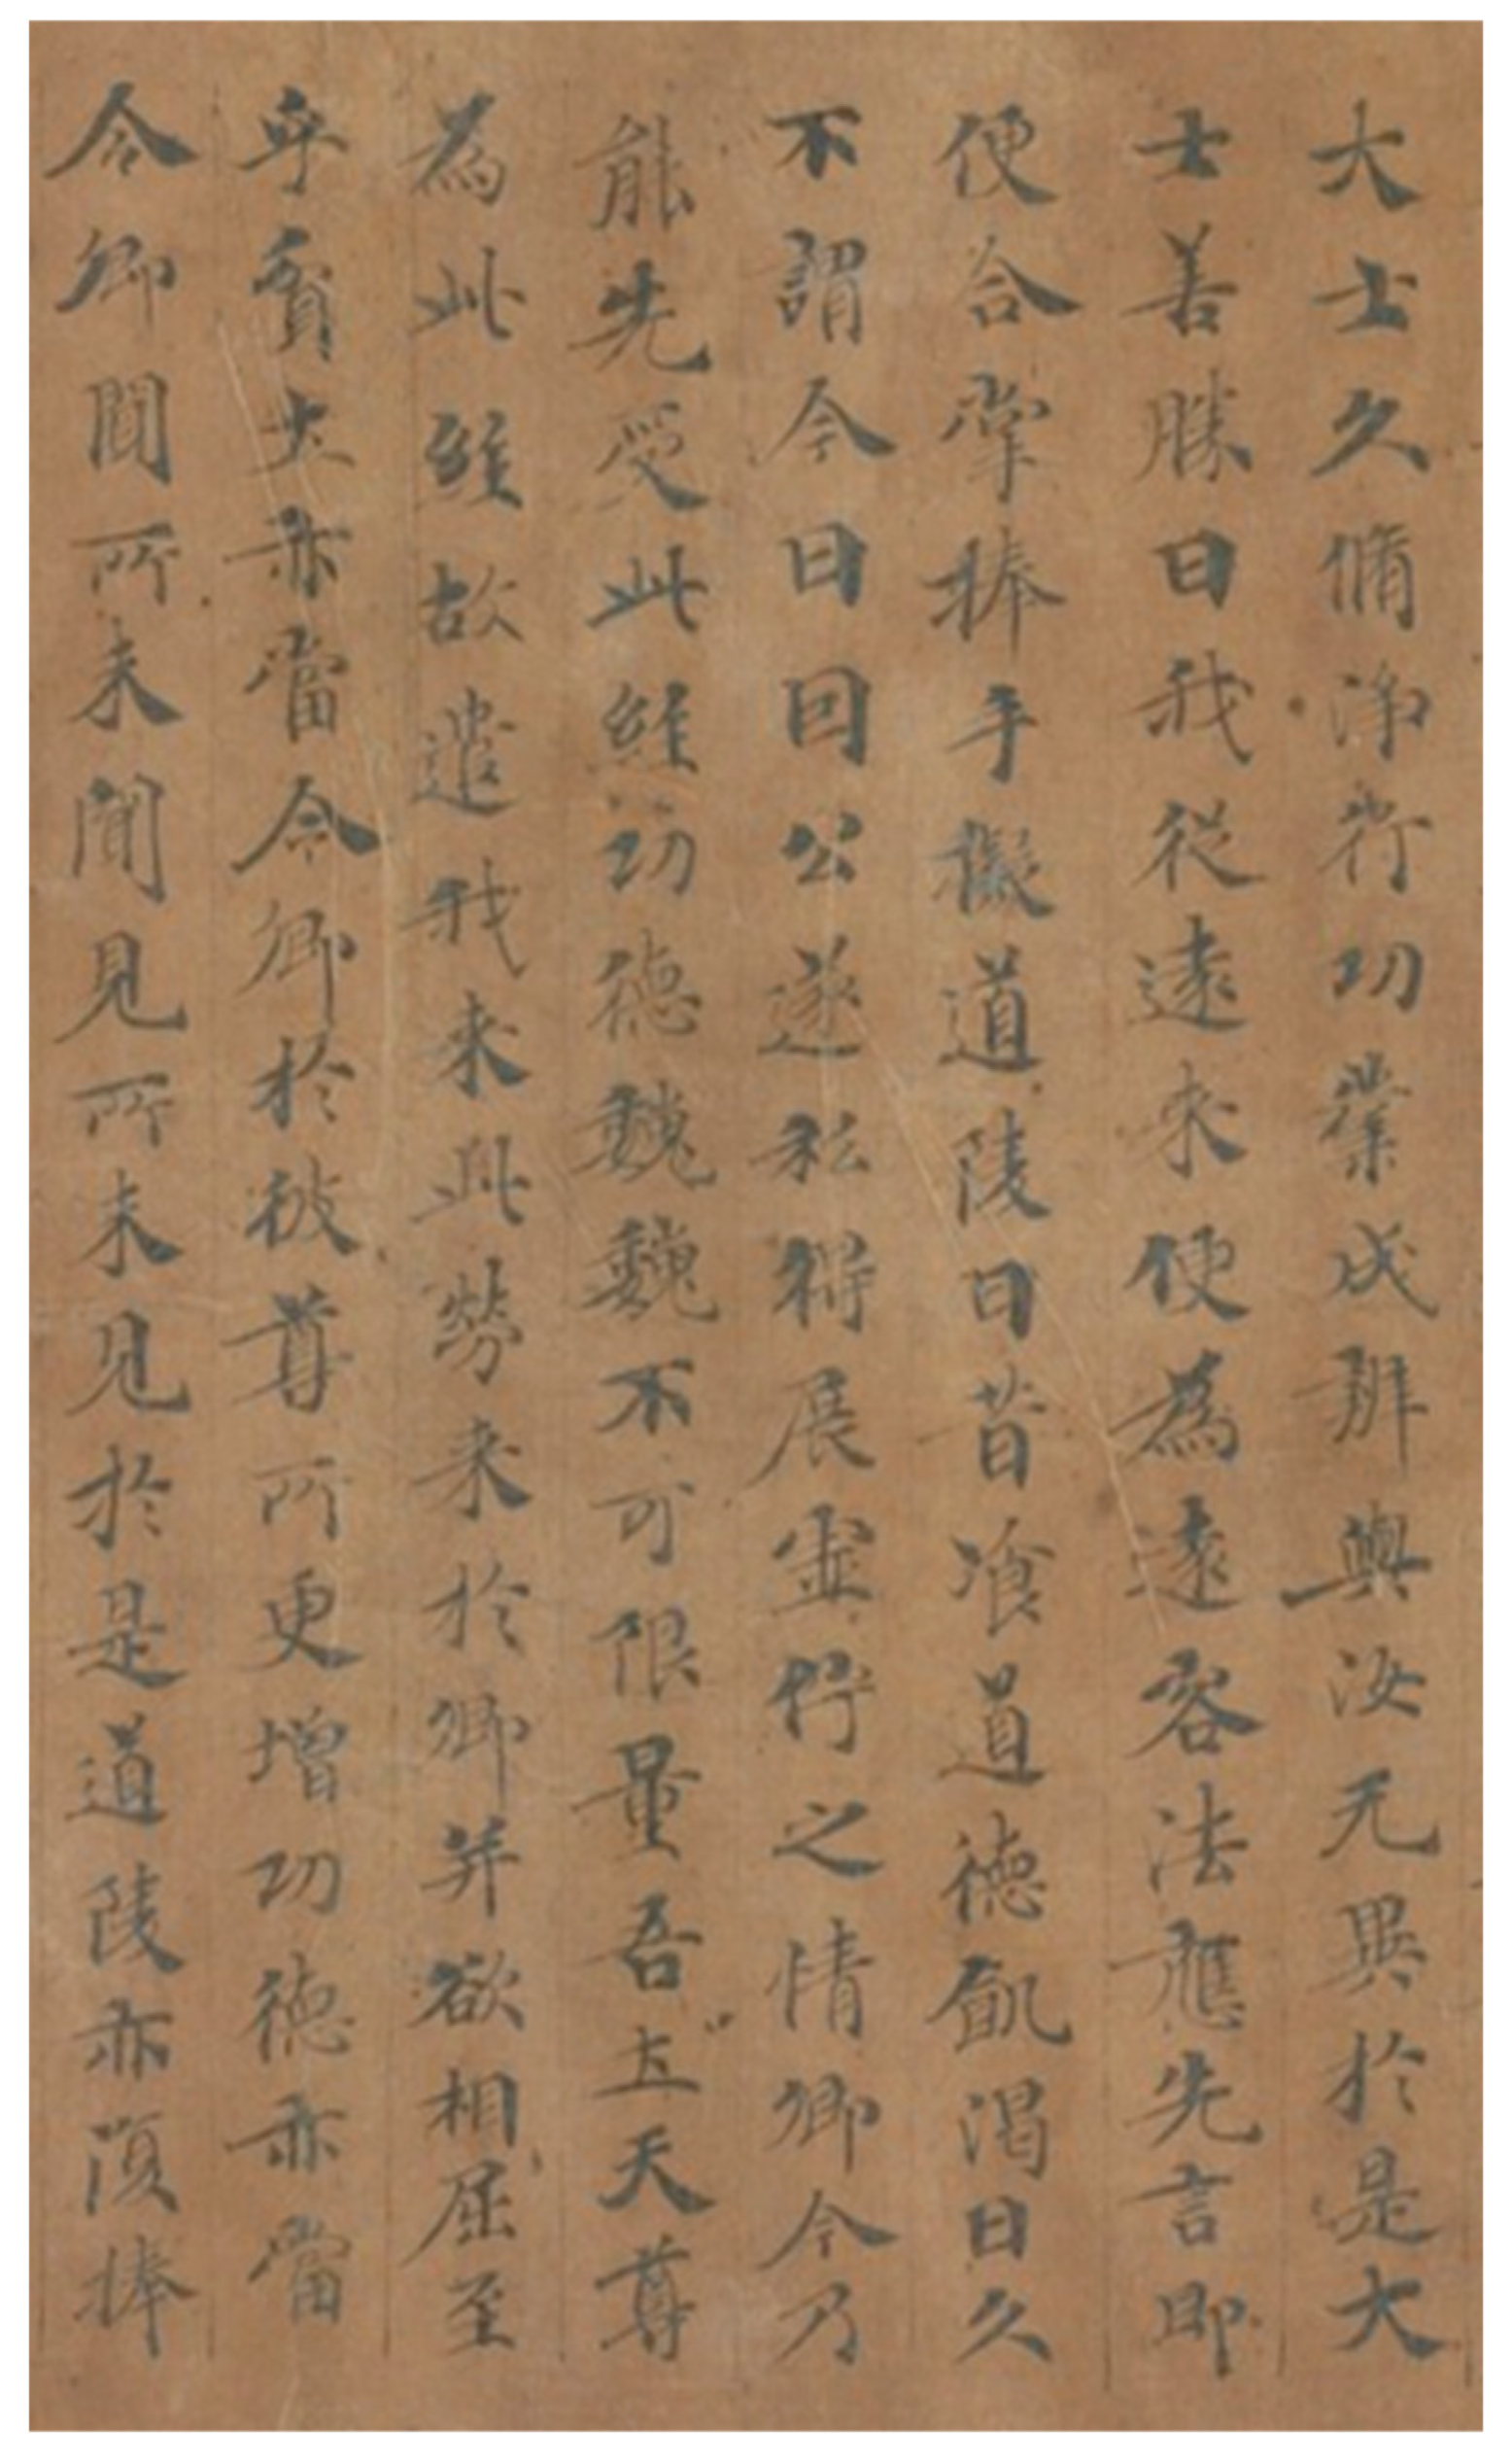 大士久脩淨行功業成辦與汝无異於是大
士善勝曰我從遠來便為遠客法應先言即
便合掌捧手擬道陵曰昔飡道德飢渴日久
不謂今日回公遂私得展靈行之情卿今乃
能先受此經功德巍巍不可限量吾上天尊
為此經故遣我來此勞來於卿并欲相屈至
乎賢大亦當令卿於彼尊所更增功德亦當
令卿聞所未聞見所未見於是道陵亦復捧